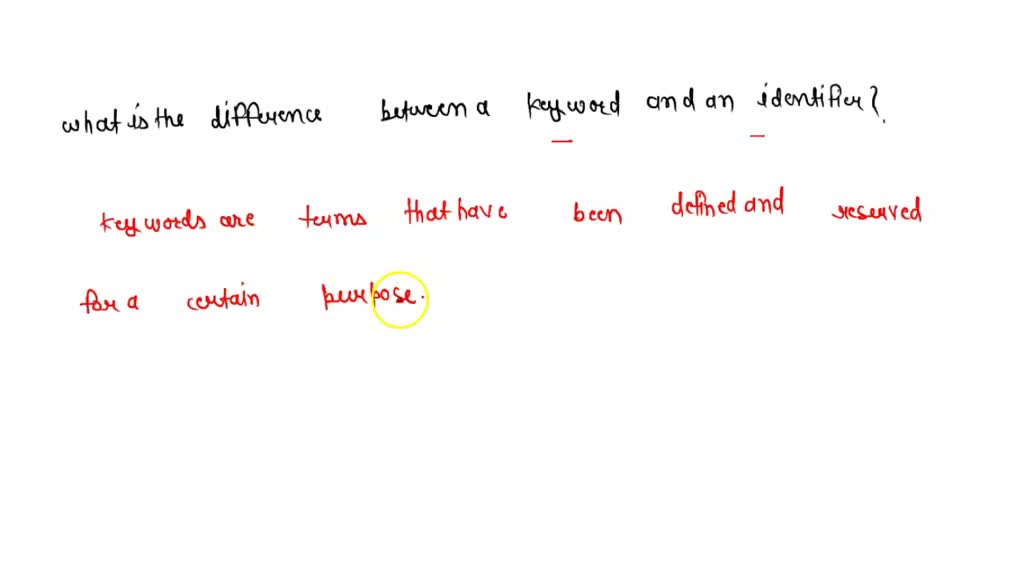 what is the difference between a keyword and an identifier?
keywords are terms that have been defined and reserved
for a certain purpose.